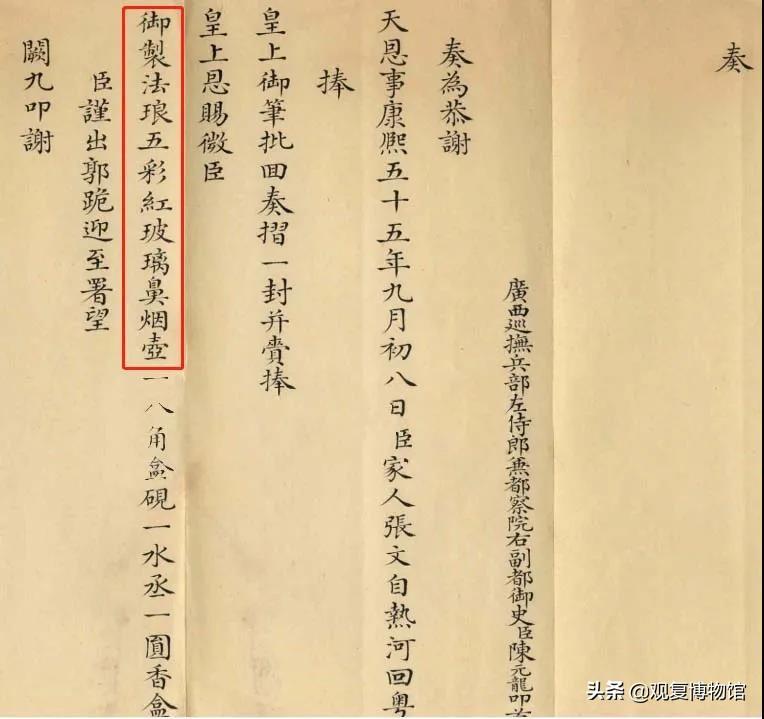 奏
廣西巡撫兵部左侍郎兼都察院右副都御史臣陳元龍叩首
奏為恭謝
天恩事康熙五十五年九月初八日臣家人張文自熱河回粵
捧
皇上御筆批回奏摺一封并賫捧
皇上恩賜微臣
御製法琅五彩紅玻璃鼻烟壺一八角盒硯一水丞一圓香盒
臣謹出郭跪迎至署望
闕九叩謝
头条 @观复博物馆